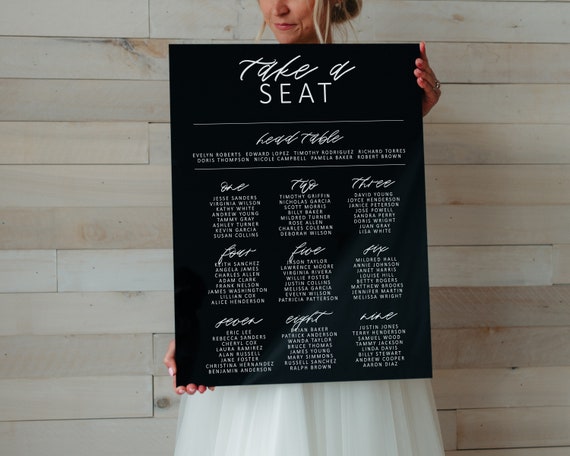 take a
SEAT
head table
EVELYN ROBERTS EDWARD LOPEZ TIMOTHY RODRIGUEZ RICHARD TORRES
DORIS THOMPSON NICOLE CAMPBELL PAMELA BAKER ROBERT BROWN
one
JESSE SANDERS
VIRGINIA WILSON
KATHY WHITE
ANDREW YOUNG
TAMMY GRAY
ASHLEY TURNER
KEVIN GARCIA
SUSAN COLLINS
two
TIMOTHY GRIFFIN
NICHOLAS GARCIA
SCOTT MORRIS
BILLY BAKER
MILDRED TURNER
ROSE ALLEN
CHARLES COLEMAN
DEBORAH WILSON
three
DAVID YOUNG
JOYCE HENDERSON
JANICE PETERSON
JOSE POWELL
SANDRA PERRY
DORIS DIAZ
JUAN GRAY
LISA WHITE
four
KEITH SANCHEZ
ANGELA JAMES
CHARLES ALLEN
ADAM CLARK
FRANK NELSON
JAMES WASHINGTON
LILLIAN COX
ALICE HENDERSON
five
JASON TAYLOR
LAWRENCE MOORE
VIRGINIA RIVERA
WILLIE FOSTER
JUSTIN COLLINS
MELISSA GARCIA
EVELYN WILSON
PATRICIA PATTERSON
six
MILDRED HALL
ANNIE JOHNSON
JANET HARRIS
LOUISE HILL
BETTY ROGERS
MATTHEW BROOKS
JENNIFER MARTIN
MELISSA WRIGHT
seven
ERIC LEE
REBECCA SANDERS
CHERYL COX
LAURA RAMIREZ
ALAN RUSSELL
JANE FOSTER
CHRISTINA HERNANDEZ
BENJAMIN ANDERSON
eight
BRIAN BAKER
PATRICK ANDERSON
WANDA TAYLOR
BRUCE THOMAS
JAMES YOUNG
MARY SIMMONS
RUSSELL SANCHEZ
RALPH BROWN
nine
JUSTIN JONES
TERRY HENDERSON
SAMUEL WOOD
TAMMY JACKSON
LINDA DAVIS
BILLY STEWART
ANDREW COOPER
AARON DIAZ